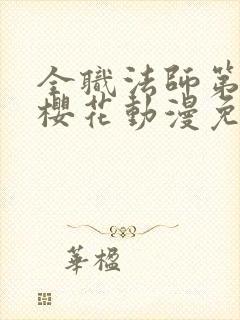 全職法師第
櫻花動漫免
華楹